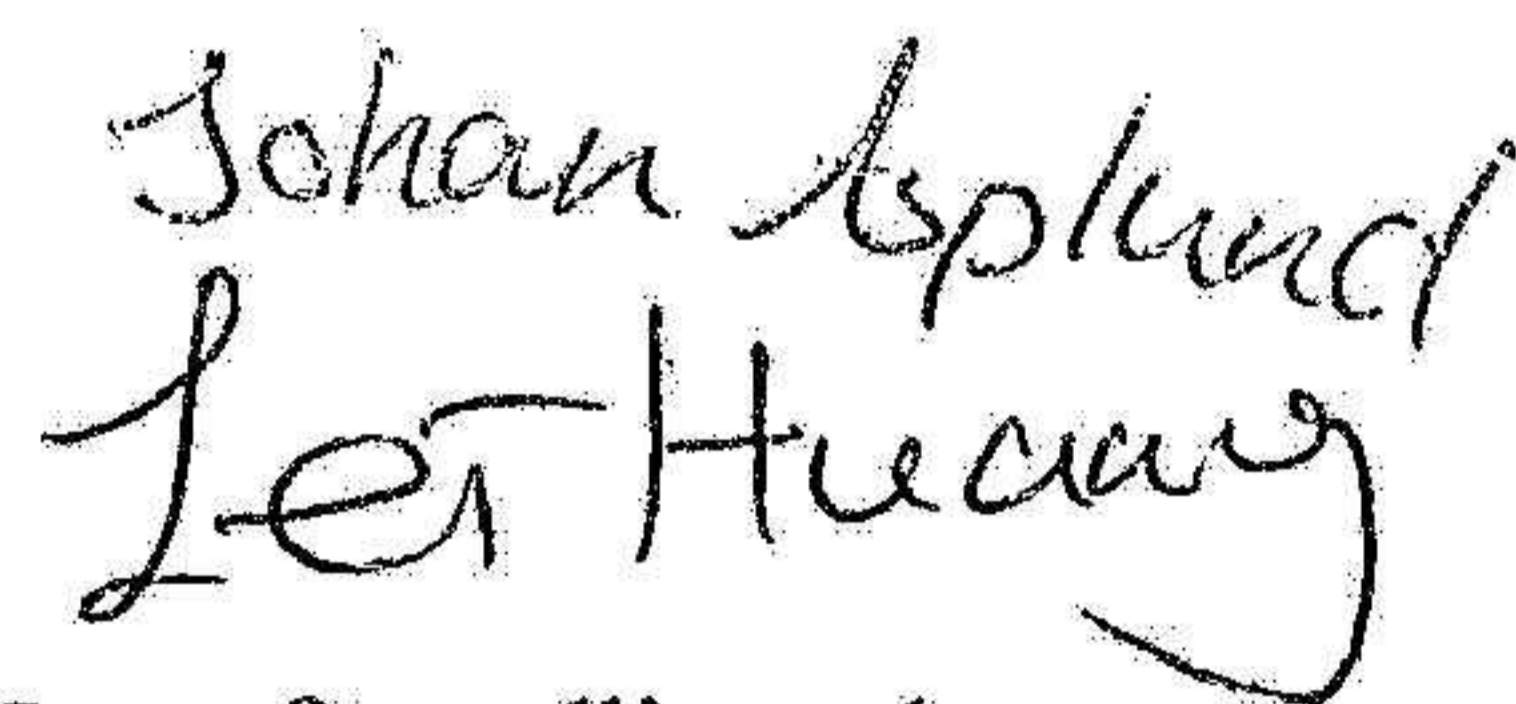 Johan Asplund
Lei Huang